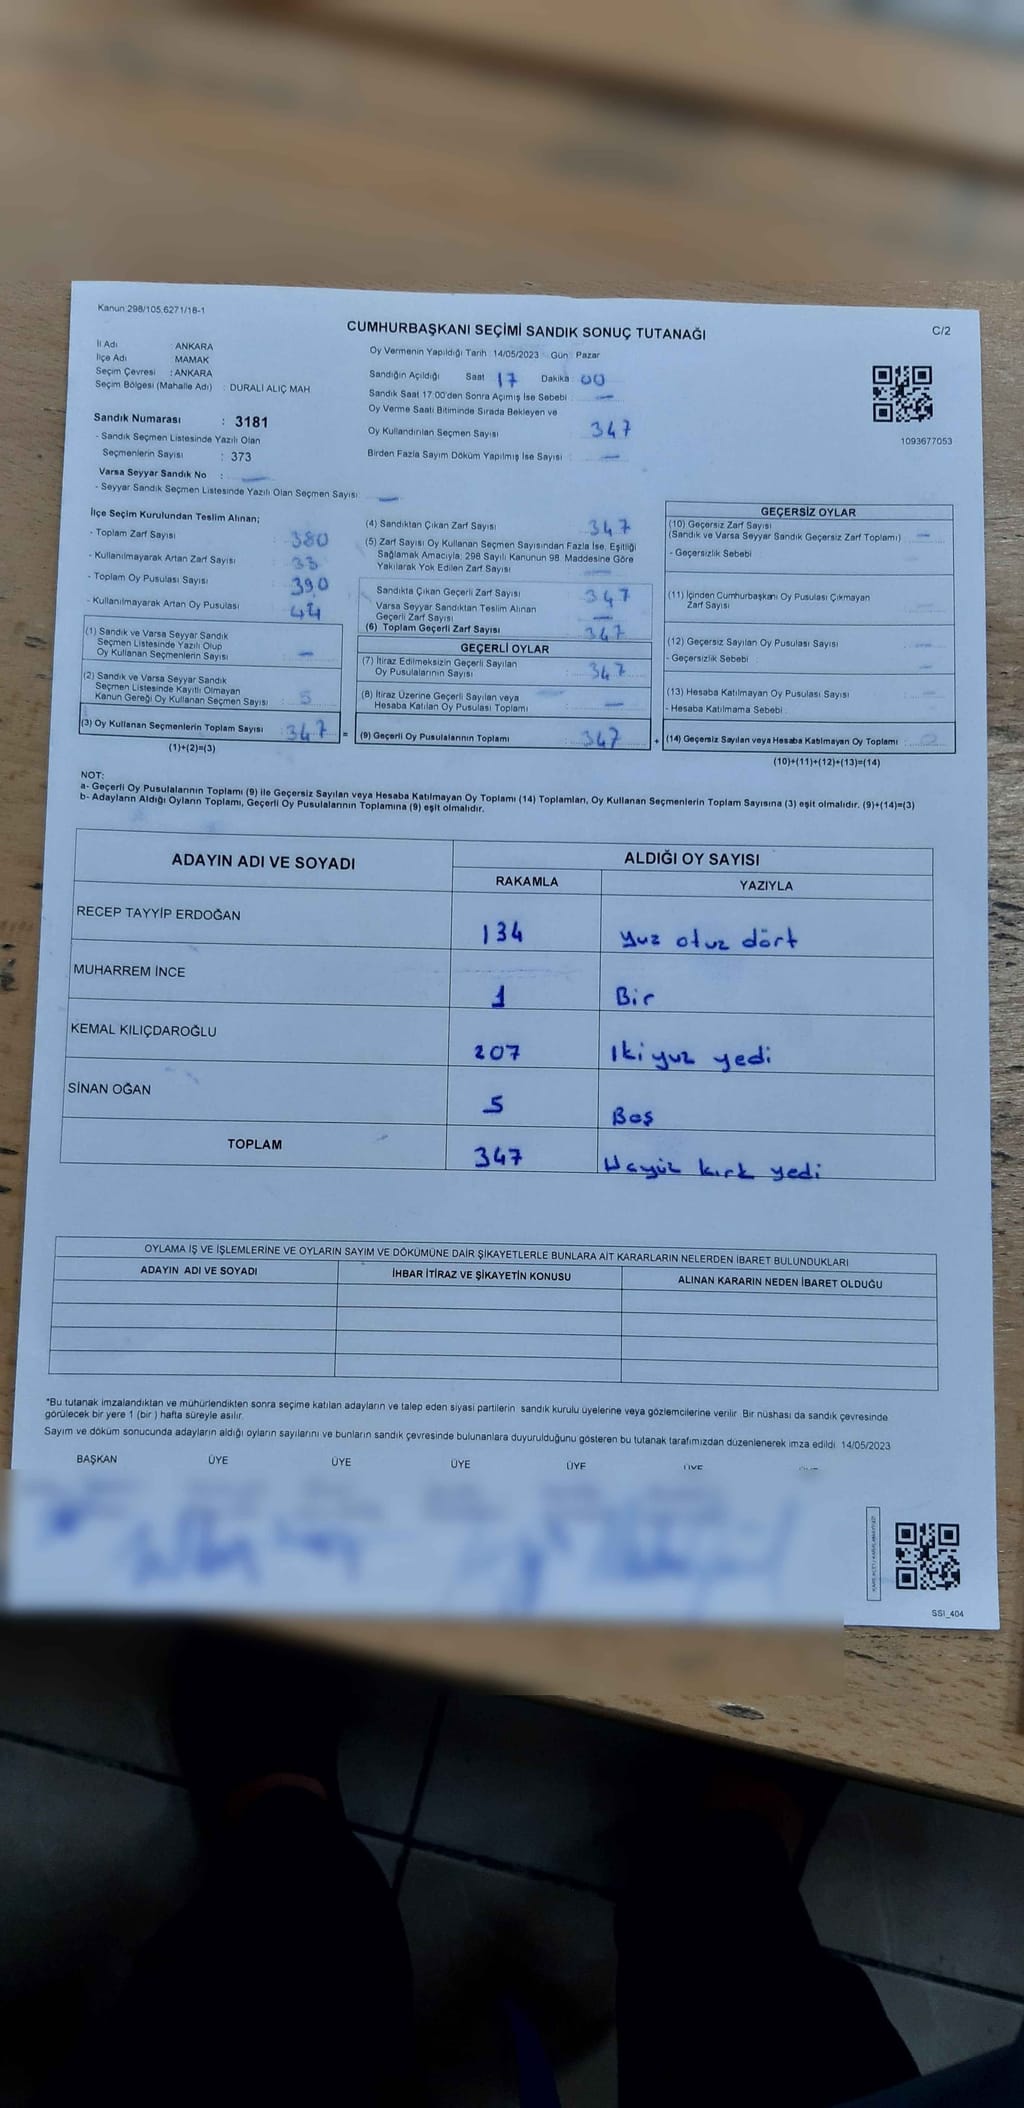 Kanun:298/105,6271/16-1
CUMHURBAŞKANI SEÇİMİ SANDIK SONUÇ TUTANAĞI
C/2
İl Adı : ANKARA
İlçe Adı : MAMAK
Seçim Çevresi : ANKARA
Seçim Bölgesi (Mahalle Adı) : DURALİ ALIÇ MAH
Oy Vermenin Yapıldığı Tarih 14/05/2023 Gün Pazar
Sandığın Açıldığı Saat 17 Dakika 00
Sandık Saat 17.00'den Sonra Açımış İse Sebebi : —
Oy Verme Saati Bitiminde Sırada Bekleyen ve
Oy Kullandırılan Seçmen Sayısı : 347
Birden Fazla Sayım Döküm Yapılmış İse Sayısı : —
1093677053
Sandık Numarası : 3181
- Sandık Seçmen Listesinde Yazılı Olan
Seçmenlerin Sayısı : 373
Varsa Seyyar Sandık No : —
- Seyyar Sandık Seçmen Listesinde Yazılı Olan Seçmen Sayısı: —
İlçe Seçim Kurulundan Teslim Alınan;
- Toplam Zarf Sayısı : 380
- Kullanılmayarak Artan Zarf Sayısı : 33
- Toplam Oy Pusulası Sayısı : 390
- Kullanılmayarak Artan Oy Pusulası : 44
(1) Sandık ve Varsa Seyyar Sandık
Seçmen Listesinde Yazılı Olup
Oy Kullanan Seçmenlerin Sayısı : —
(2) Sandık ve Varsa Seyyar Sandık
Seçmen Listesinde Kayıtlı Olmayan
Kanun Gereği Oy Kullanan Seçmen Sayısı : 5
(3) Oy Kullanan Seçmenlerin Toplam Sayısı : 347 =
(1)+(2)=(3)
(4) Sandıktan Çıkan Zarf Sayısı : 347
(5) Zarf Sayısı Oy Kullanan Seçmen Sayısından Fazla İse, Eşitliği
Sağlamak Amacıyla; 298 Sayılı Kanunun 98. Maddesine Göre
Yakılarak Yok Edilen Zarf Sayısı : —
Sandıkta Çıkan Geçerli Zarf Sayısı : 347
Varsa Seyyar Sandıktan Teslim Alınan
Geçerli Zarf Sayısı : —
(6) Toplam Geçerli Zarf Sayısı : 347
GEÇERLİ OYLAR
(7) İtiraz Edilmeksizin Geçerli Sayılan
Oy Pusulalarının Sayısı : 347
(8) İtiraz Üzerine Geçerli Sayılan veya
Hesaba Katılan Oy Pusulası Toplamı : —
(9) Geçerli Oy Pusulalarının Toplamı : 347 +
GEÇERSİZ OYLAR
(10) Geçersiz Zarf Sayısı
(Sandık ve Varsa Seyyar Sandık Geçersiz Zarf Toplamı) : —
- Geçersizlik Sebebi :
(11) İçinden Cumhurbaşkanı Oy Pusulası Çıkmayan
Zarf Sayısı : —
(12) Geçersiz Sayılan Oy Pusulası Sayısı : —
- Geçersizlik Sebebi : —
(13) Hesaba Katılmayan Oy Pusulası Sayısı : —
- Hesaba Katılmama Sebebi :
(14) Geçersiz Sayılan veya Hesaba Katılmayan Oy Toplamı :
(10)+(11)+(12)+(13)=(14)
NOT:
a- Geçerli Oy Pusulalarının Toplamı (9) ile Geçersiz Sayılan veya Hesaba Katılmayan Oy Toplamı (14) Toplamları, Oy Kullanan Seçmenlerin Toplam Sayısına (3) eşit olmalıdır. (9)+(14)=(3)
b- Adayların Aldığı Oyların Toplamı, Geçerli Oy Pusulalarının Toplamına (9) eşit olmalıdır.
ADAYIN ADI VE SOYADI ALDIĞI OY SAYISI
RAKAMLA YAZIYLA
RECEP TAYYİP ERDOĞAN 134 Yuz otuz dört
MUHARREM İNCE 1 Bir
KEMAL KILIÇDAROĞLU 207 İkiyuz yedi
SİNAN OĞAN 5 Beş
TOPLAM 347 Üçyüz kırk yedi
OYLAMA İŞ VE İŞLEMLERİNE VE OYLARIN SAYIM VE DÖKÜMÜNE DAİR ŞİKAYETLERLE BUNLARA AİT KARARLARIN NELERDEN İBARET BULUNDUKLARI
ADAYIN ADI VE SOYADI İHBAR İTİRAZ VE ŞİKAYETİN KONUSU ALINAN KARARIN NEDEN İBARET OLDUĞU
*Bu tutanak imzalandıktan ve mühürlendikten sonra seçime katılan adayların ve talep eden siyasi partilerin sandık kurulu üyelerine veya gözlemcilerine verilir. Bir nüshası da sandık çevresinde
görülecek bir yere 1 (bir ) hafta süreyle asılır.
Sayım ve döküm sonucunda adayların aldığı oyların sayılarını ve bunların sandık çevresinde bulunanlara duyurulduğunu gösteren bu tutanak tarafımızdan düzenlenerek imza edildi. 14/05/2023
BAŞKAN ÜYE ÜYE ÜYE ÜYE ÜYE
SSI_404